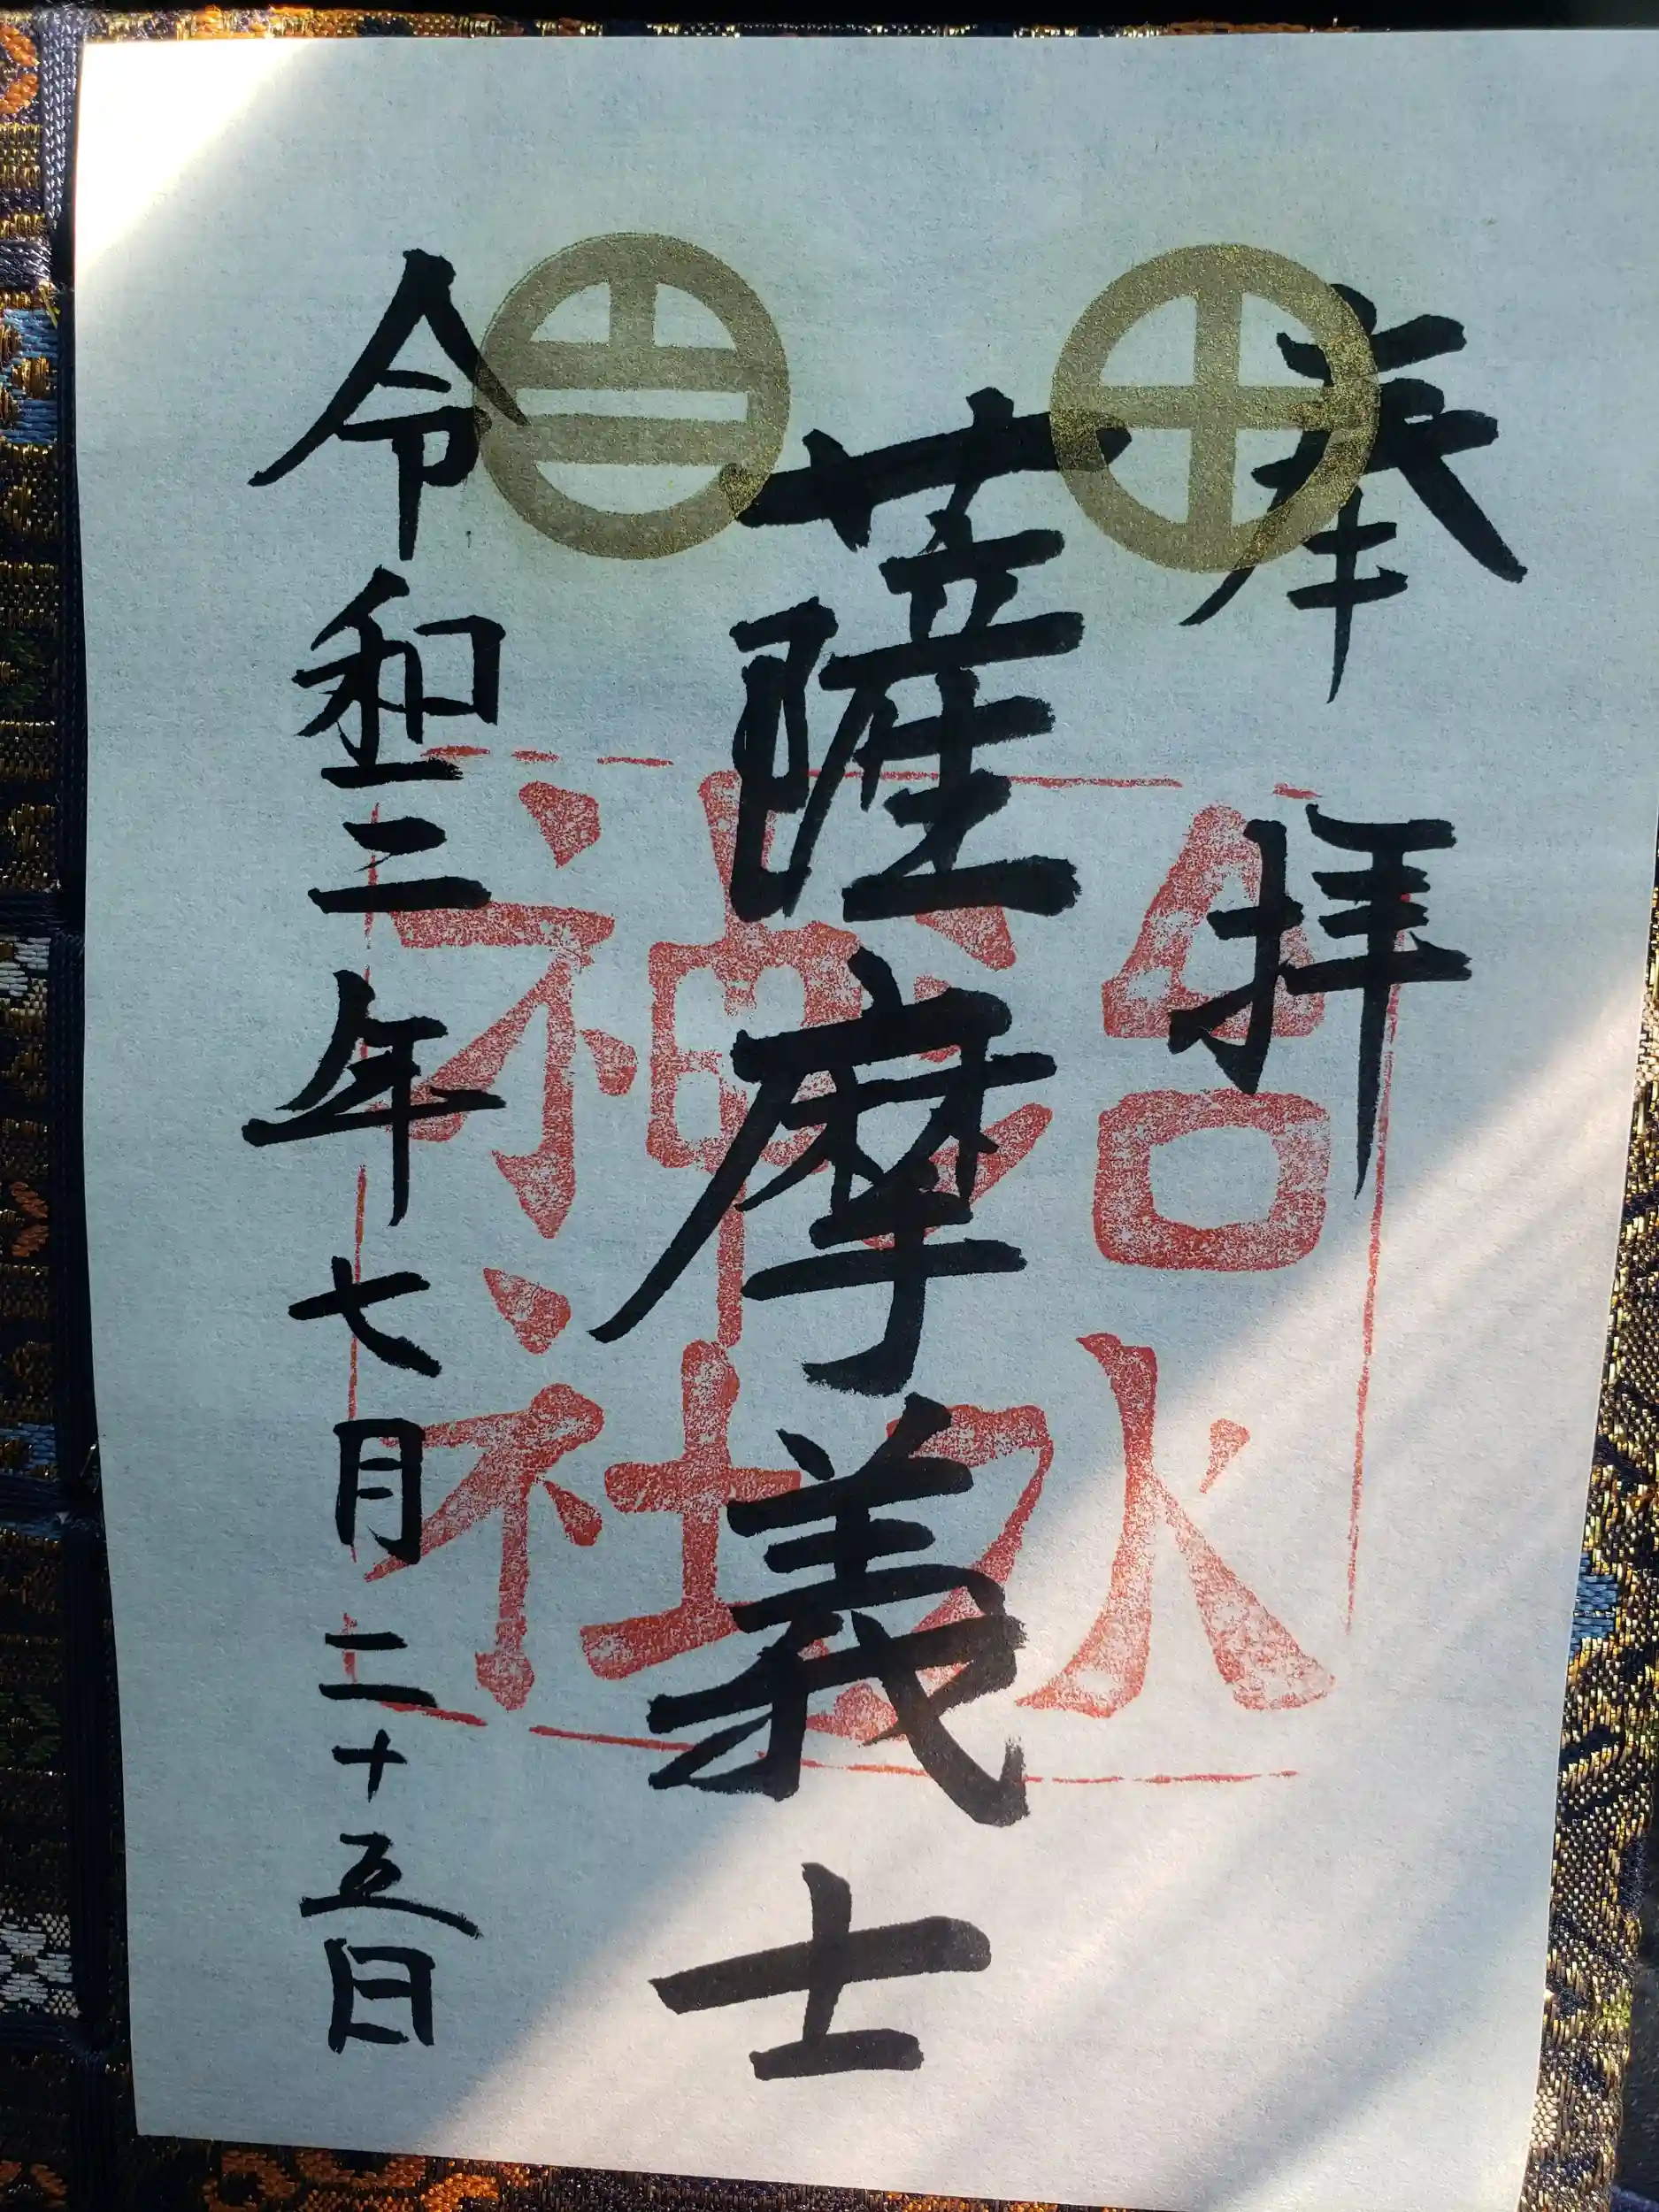 奉拝
薩摩義士
令和三年七月二十五日
治水
神社